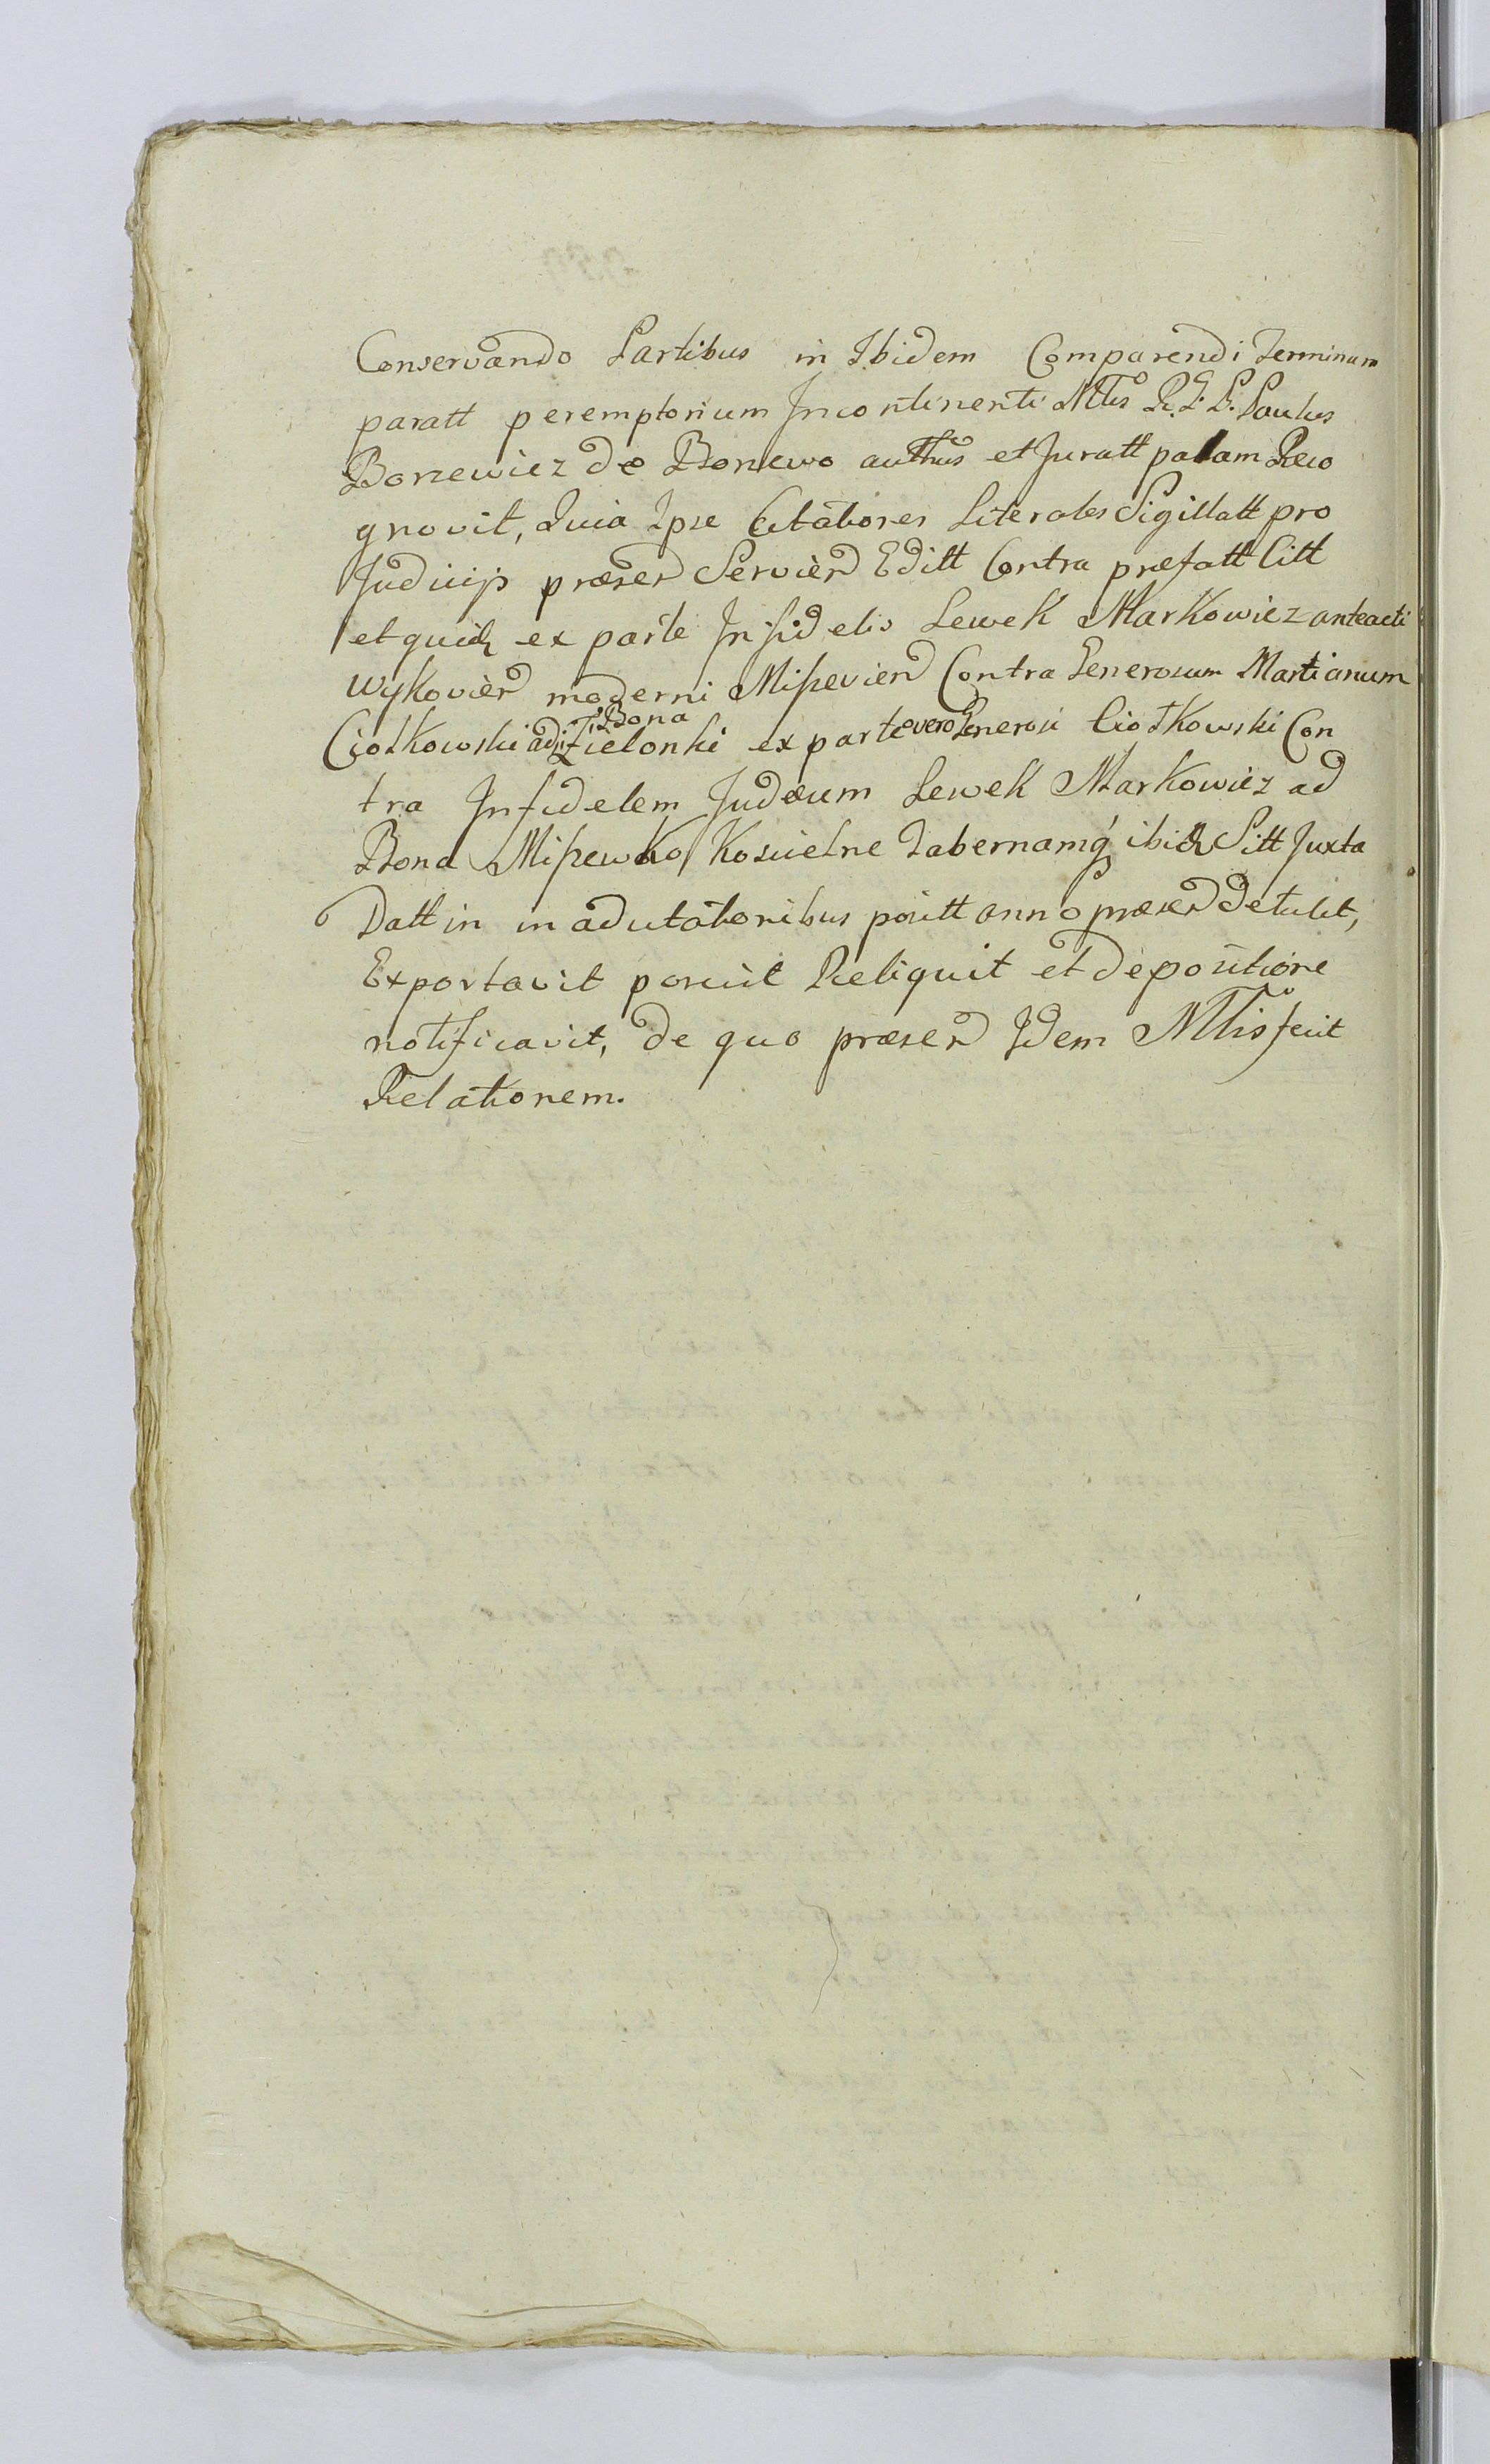 Conservando Partibus in Ibidem Comparendi Terminum
paratt peremptorium Incontinenti Mtlis R. G. P. Paulus
Boniewicz de Boniewo authus et Juratt palam Reco
gnovit, Quia Ipse Citationes Literales Sigillatt pro
Judicijs præsen Servien Editt Contra præfatt Citt
et quid ex parte Infidelis Lewek Markowicz anteacti
Wykovien moderni Miszevien Contra Generosum Martianum
Ciołkowski ad Bona Zielonki ex parte vero Generosi Ciołkowski Con
tra Infidelem Judæum Lewek Markowicz ad
Bona Miszewko Koscielne Tabernamq ibid Sitt Juxta
Datt in in ad citationibus positt anno præsen detulit,
Exportavit posuit Reliquit et depositione
notificavit, de quo præsen Idem Mtlis fecit
Relationem.